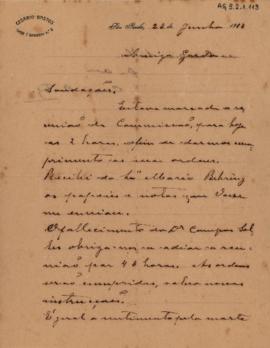 AG 5.2.1.113
CESARIO BASTOS
São Paulo, 28 de Junho 1913
Amigo
Saudações.
Esteve marcada a re-
união da Commissão, para hoje
as 2 horas, afim de darmos cum-
primento as suas ordens.
Recebi do Sr. Mario Behring
os papeis e notas que
me enviou.
O fallecimento do Dr. Campos Sal-
les obriga-nos a adiar a reu-
nião por 48 horas. As ordens
serão cumpridas, salvo novas
instruções.
É geral o sentimento pela morte